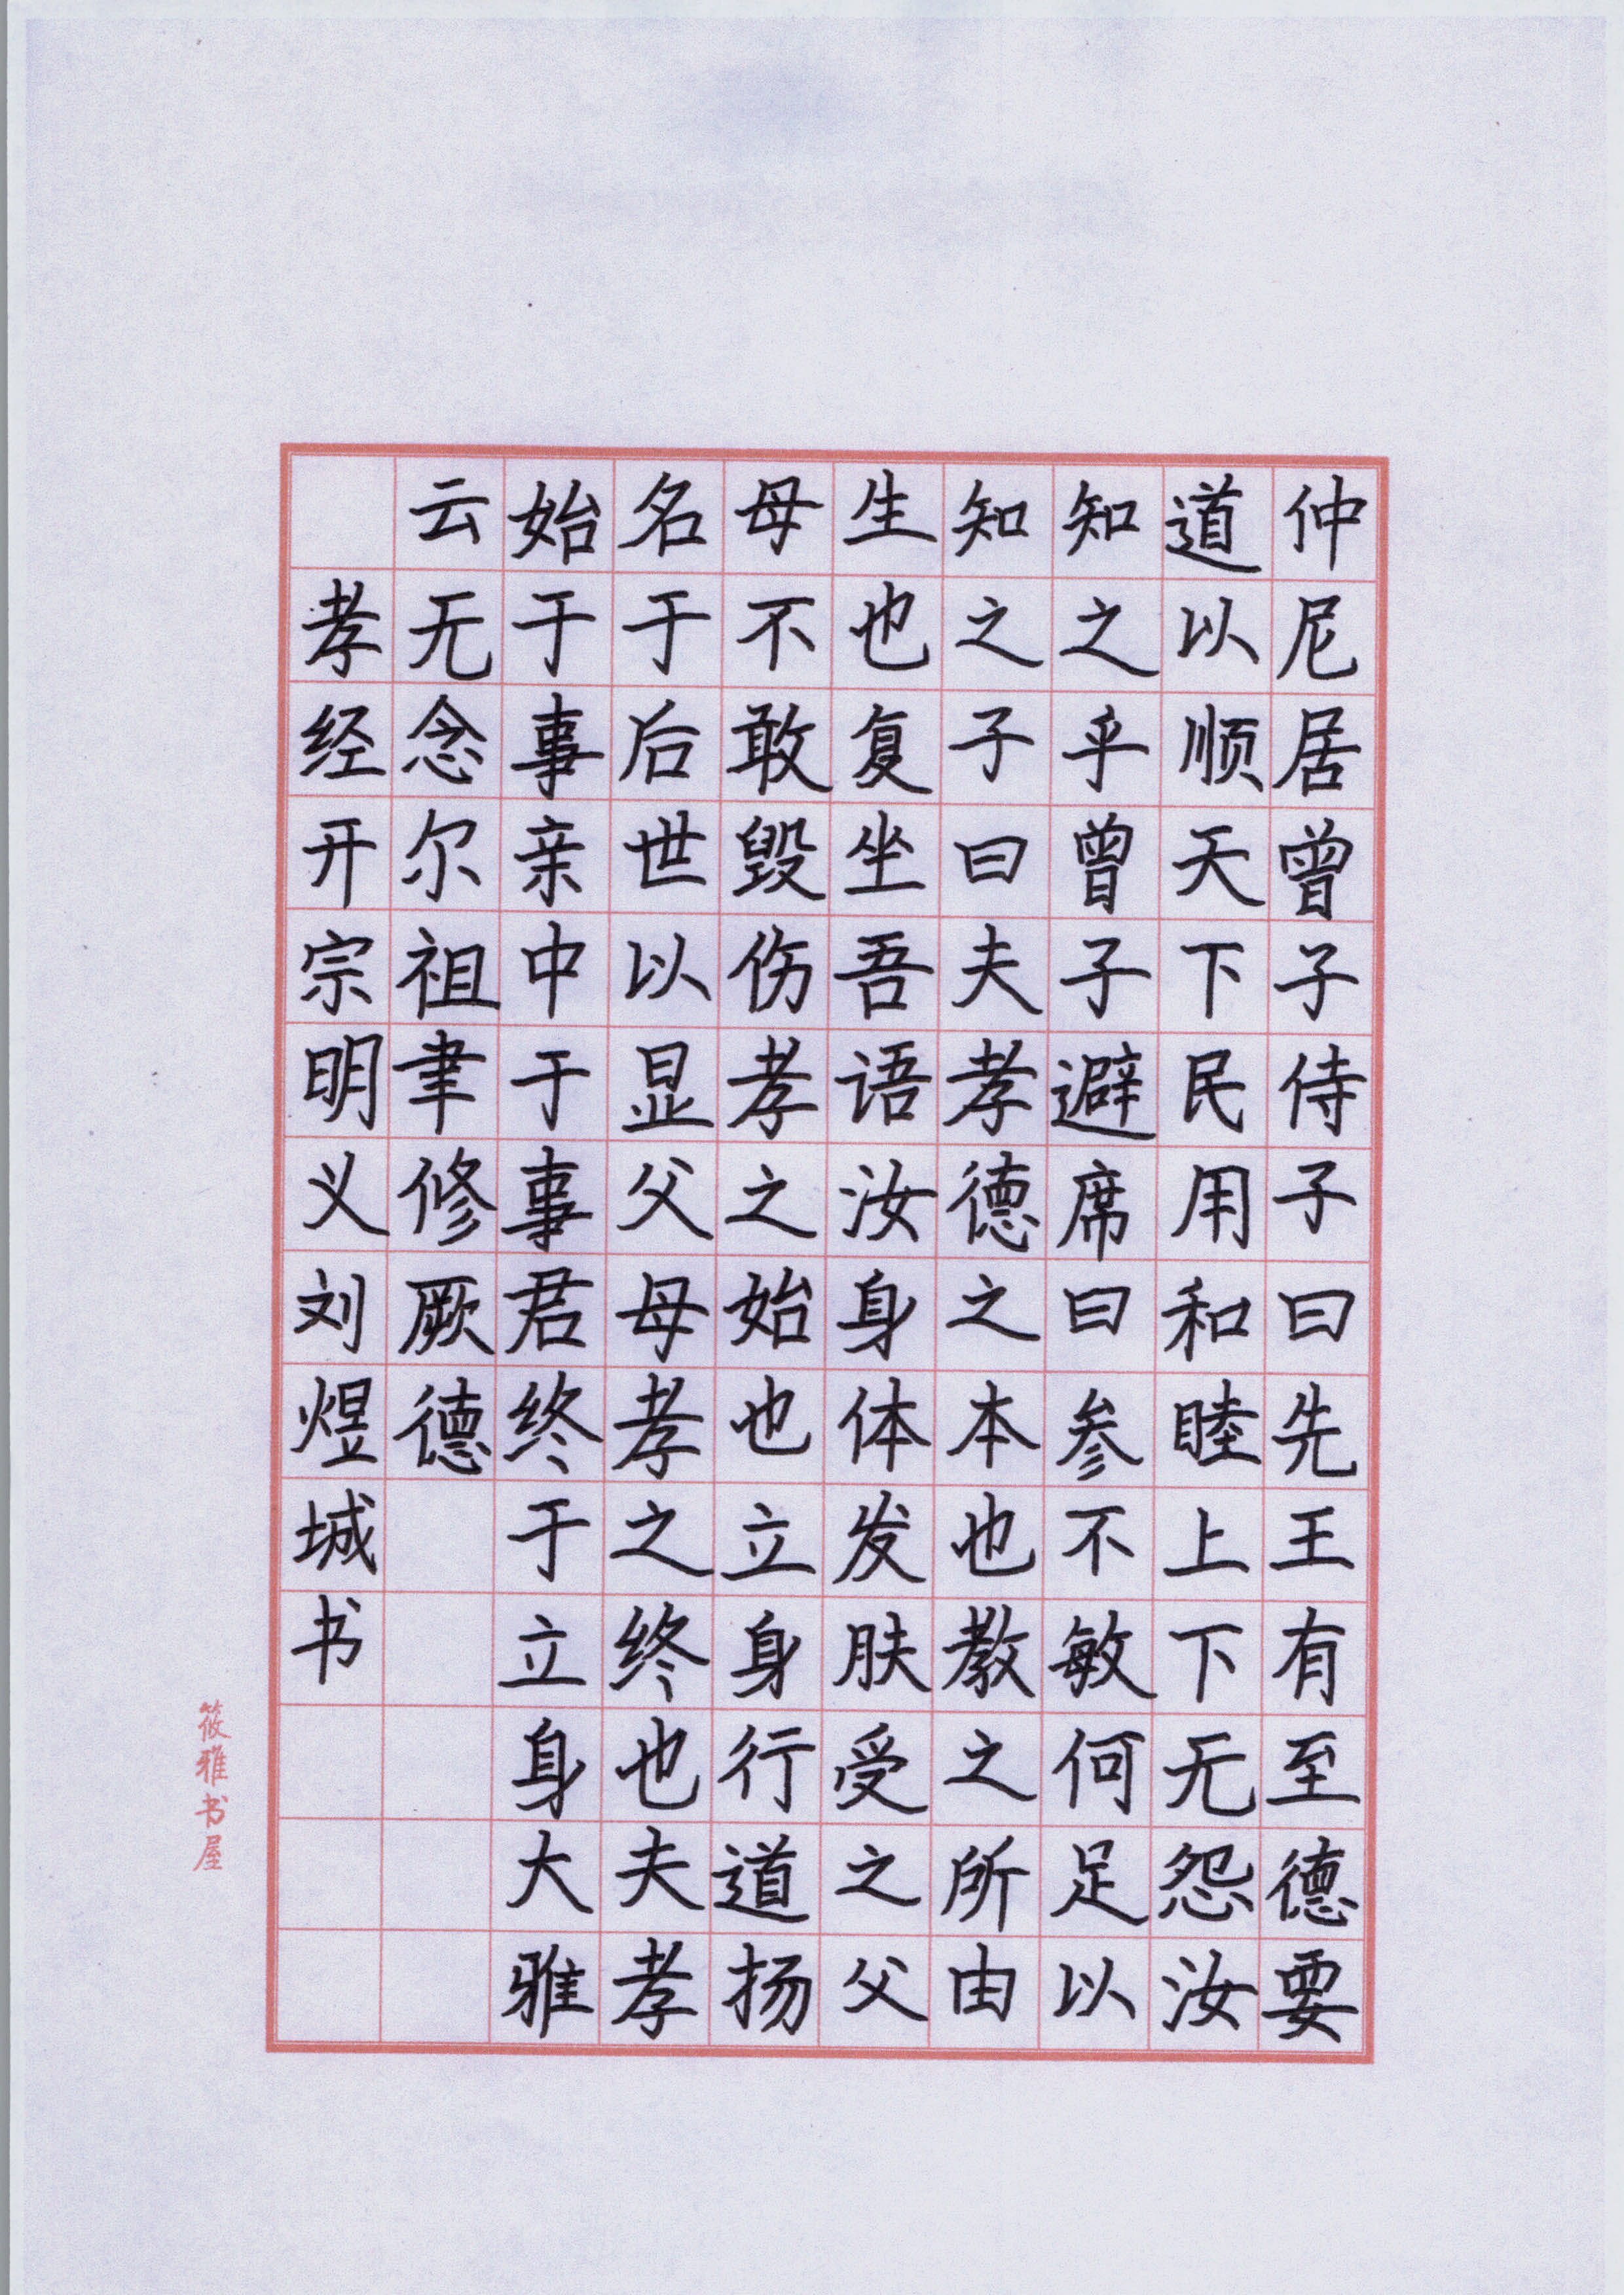 仲尼居曾子侍子曰先王有至德要
道以顺天下民用和睦上下无怨汝
知之乎曾子避席曰参不敏何足以
知之子曰夫孝德之本也教之所由
生也复坐吾语汝身体发肤受之父
母不敢毁伤孝之始也立身行道扬
名于后世以显父母孝之终也夫孝
始于事亲中于事君终于立身大雅
云无念尔祖聿修厥德
孝经开宗明义刘煜城书
筱雅书屋